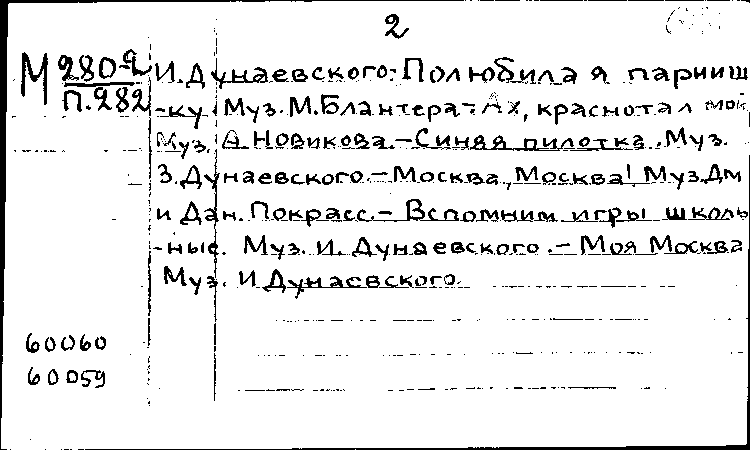 2
М 280-9
П.282
И. Дунаевского.- Полюбила я парниш
-ку. Муз. М. Блантера.- Ах, краснотал мой
Муз. А. Новикова.- Синяя пилотка. Муз.
З. Дунаевского.- Москва, Москва! Муз. Дм
и Дан. Покрасс.- Вспомним игры школь
-ные. Муз. И. Дунаевского.- Моя Москва
Муз. И Дунаевского.
60060
60059